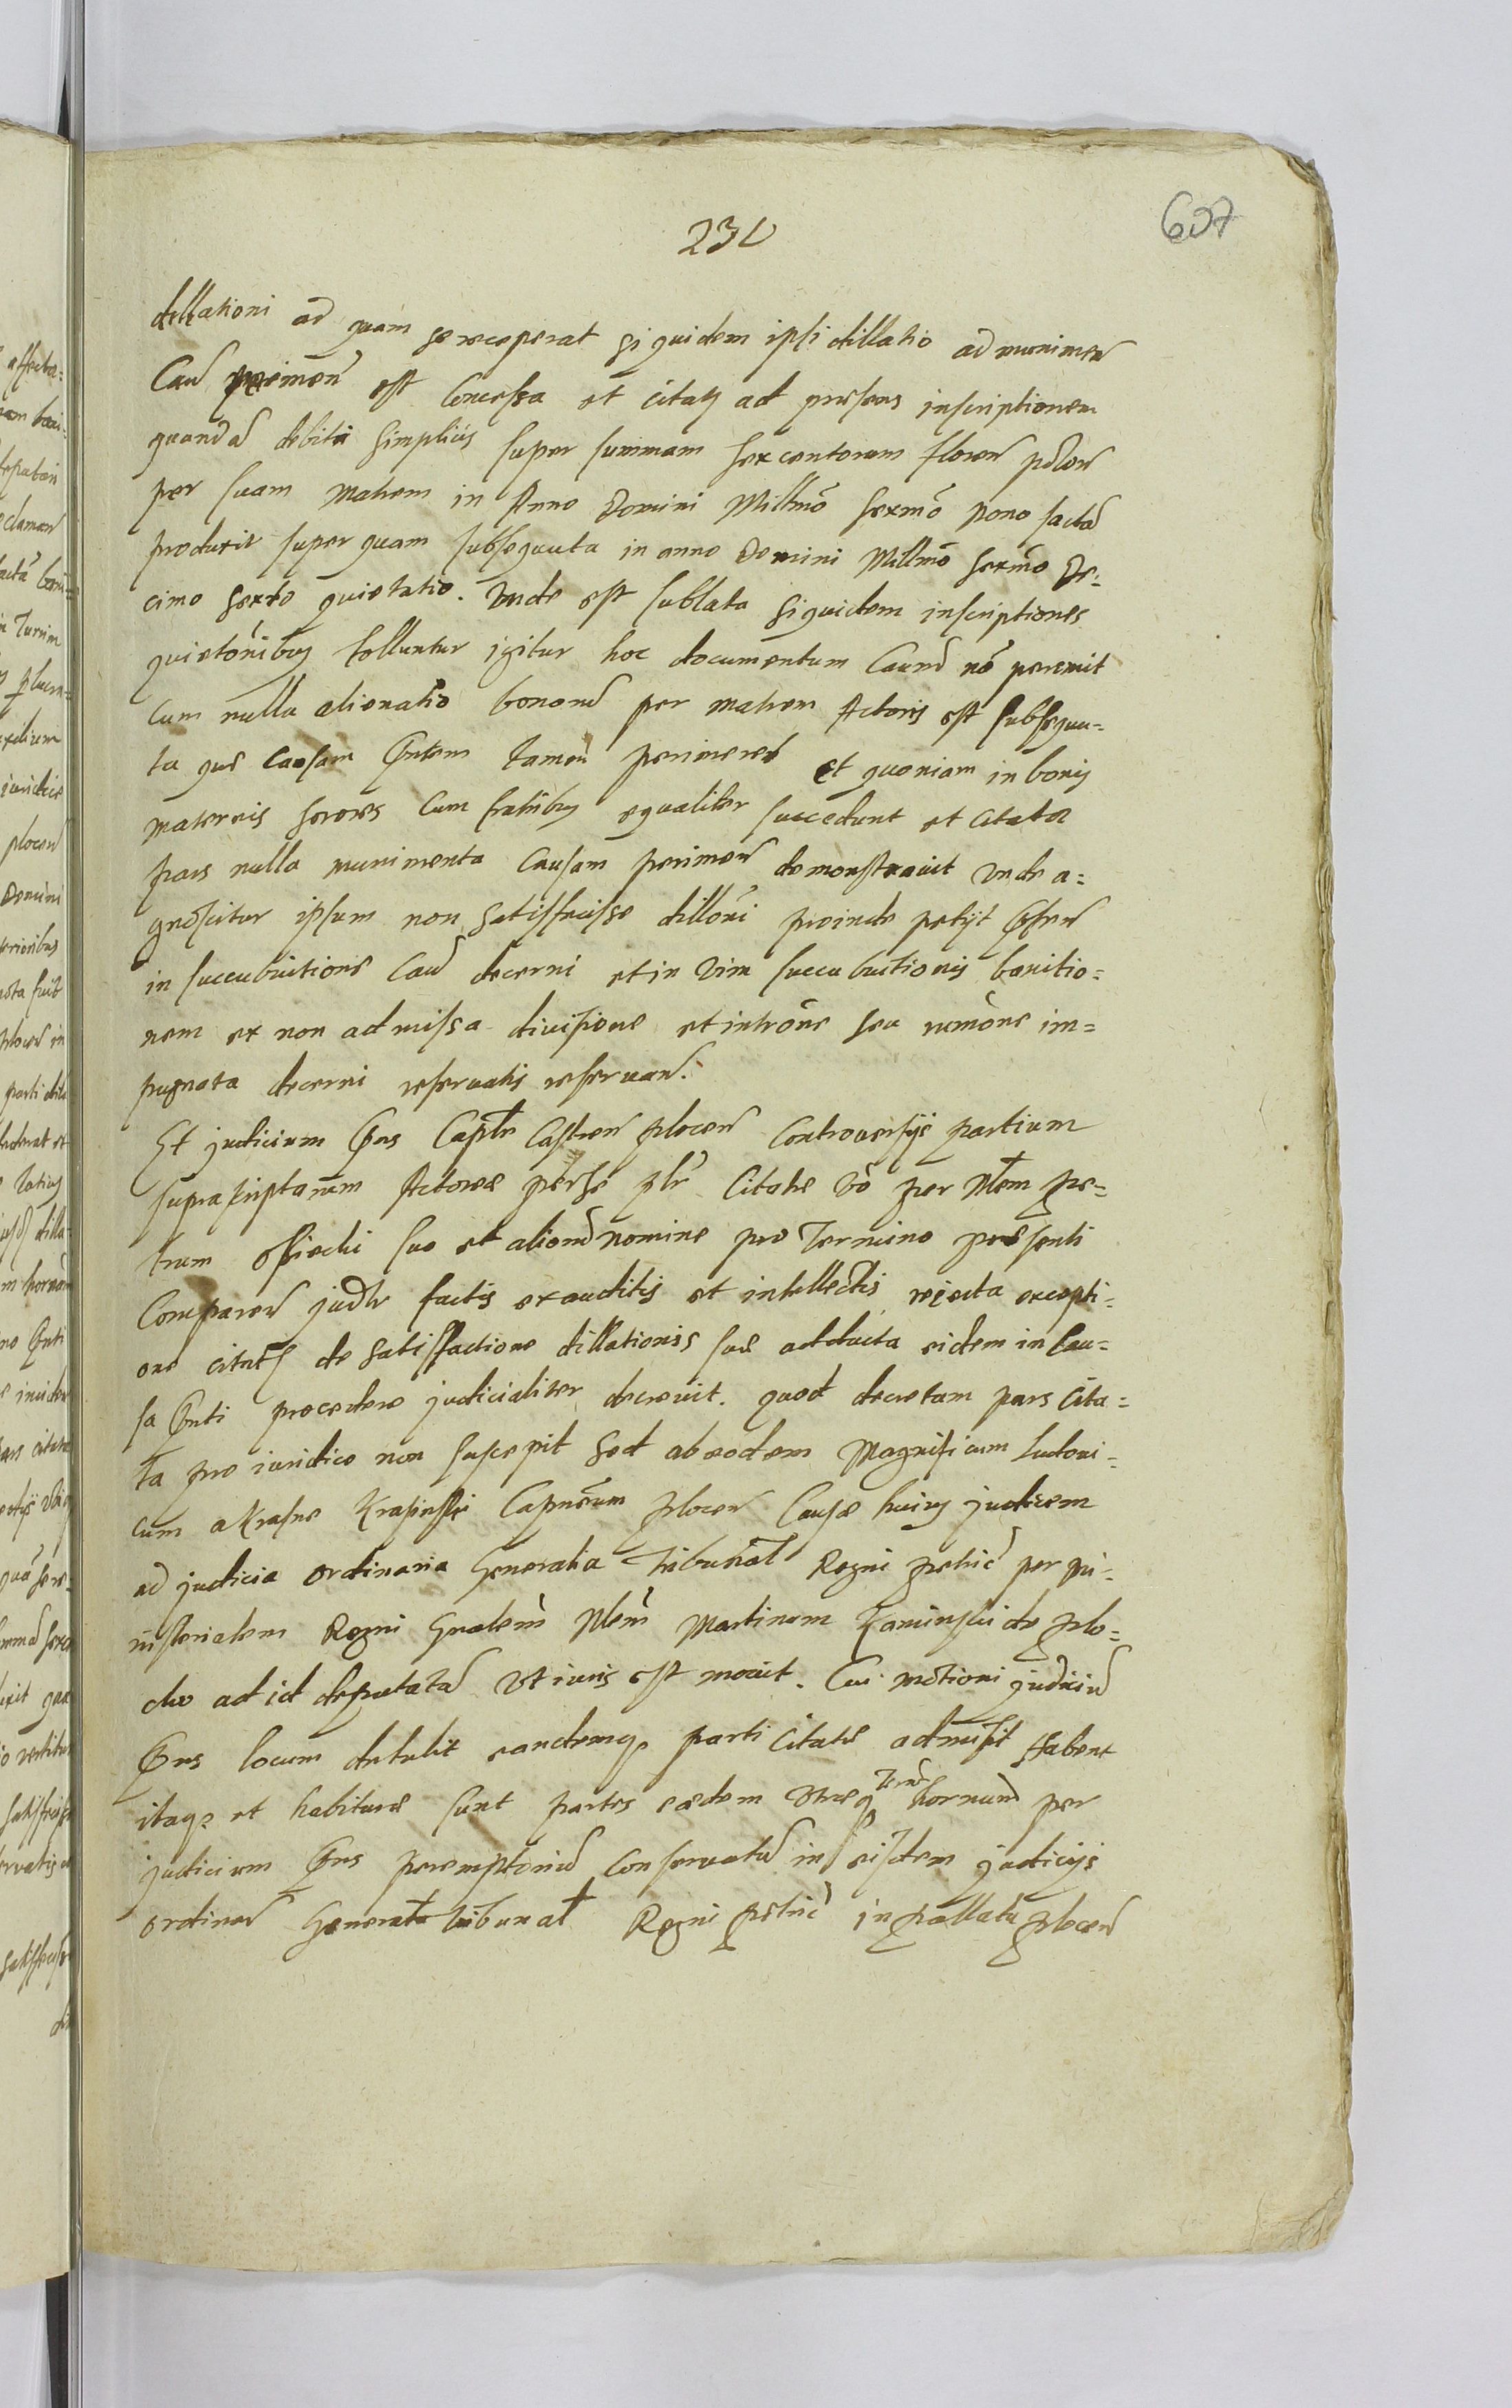 607
232
dillationi ad quam se receperat siquidem ipsi dillatio ad munimen
Cau perimen est Concessa et citatus ad praesens inscriptionem
quandam debiti simplicis super summam sexcentorum floren polon
per suam matrem in Anno Domini Millmo sexmo nono factam
produxit super quam subsequuta in anno Domini Millmo sexmo De=
cimo sexto quietatio. Unde est sublata siquidem inscriptiones
quietonibus tolluntur igitur hoc documentum Caund no peremit
cum nulla alienatio bonorum per matrem Actoris est subsequu=
ta que Causam pntem tamen perimeret et quoniam in bonis
maternis sorores Cum fratribus equaliter succedunt et Citata
pars nulla munimenta Causam perimen demonstravit unde a=
gnoscitur ipsum non satisfecisse dilloni proinde petijt pnten
in succubuitione Cau decerni et in Vim succubuitionis banitio=
nem ex non admissa divisione et introne seu rumone im=
pugnata decerni reservatis reservan.
Et judicium pns Captle Castren plocen Controversijs partium
suprascriptarum Actorea per se plr Citatae vo per Nlem Pe=
trum suo et aliorum nomine pro Termino praesenti
Comparen judlr factis exauditis et intellectis rejecta excepti=
one citatj de satisfactione dillationis suae adducta eidem in Cau=
sa pnti procedere judicialiter decrevit. quod decretum pars Cita=
ta pro iuridico non suscepit sed ab eodem Magnificum Ludovi=
cum a Krasne Krasinski Capneum plocen Causae huius judicem
ad judicia ordinaria Generalia Tribunal Regni petric per mi=
nisterialem Regni Gnalem Nlem Martinum Kaminski de Plo=
cko ad id deputatum Ut iuris est movit. Cui motioni judicium
pns locum detulit eandemque parti Citatae admisit Habent
itaque et habiturae sunt partes eaedem utraeque Term hornum per
judicium pns peremptorium Conservatum in eisdem judicijs
ordinar General Tribunal Regni petric in pallatio plocen